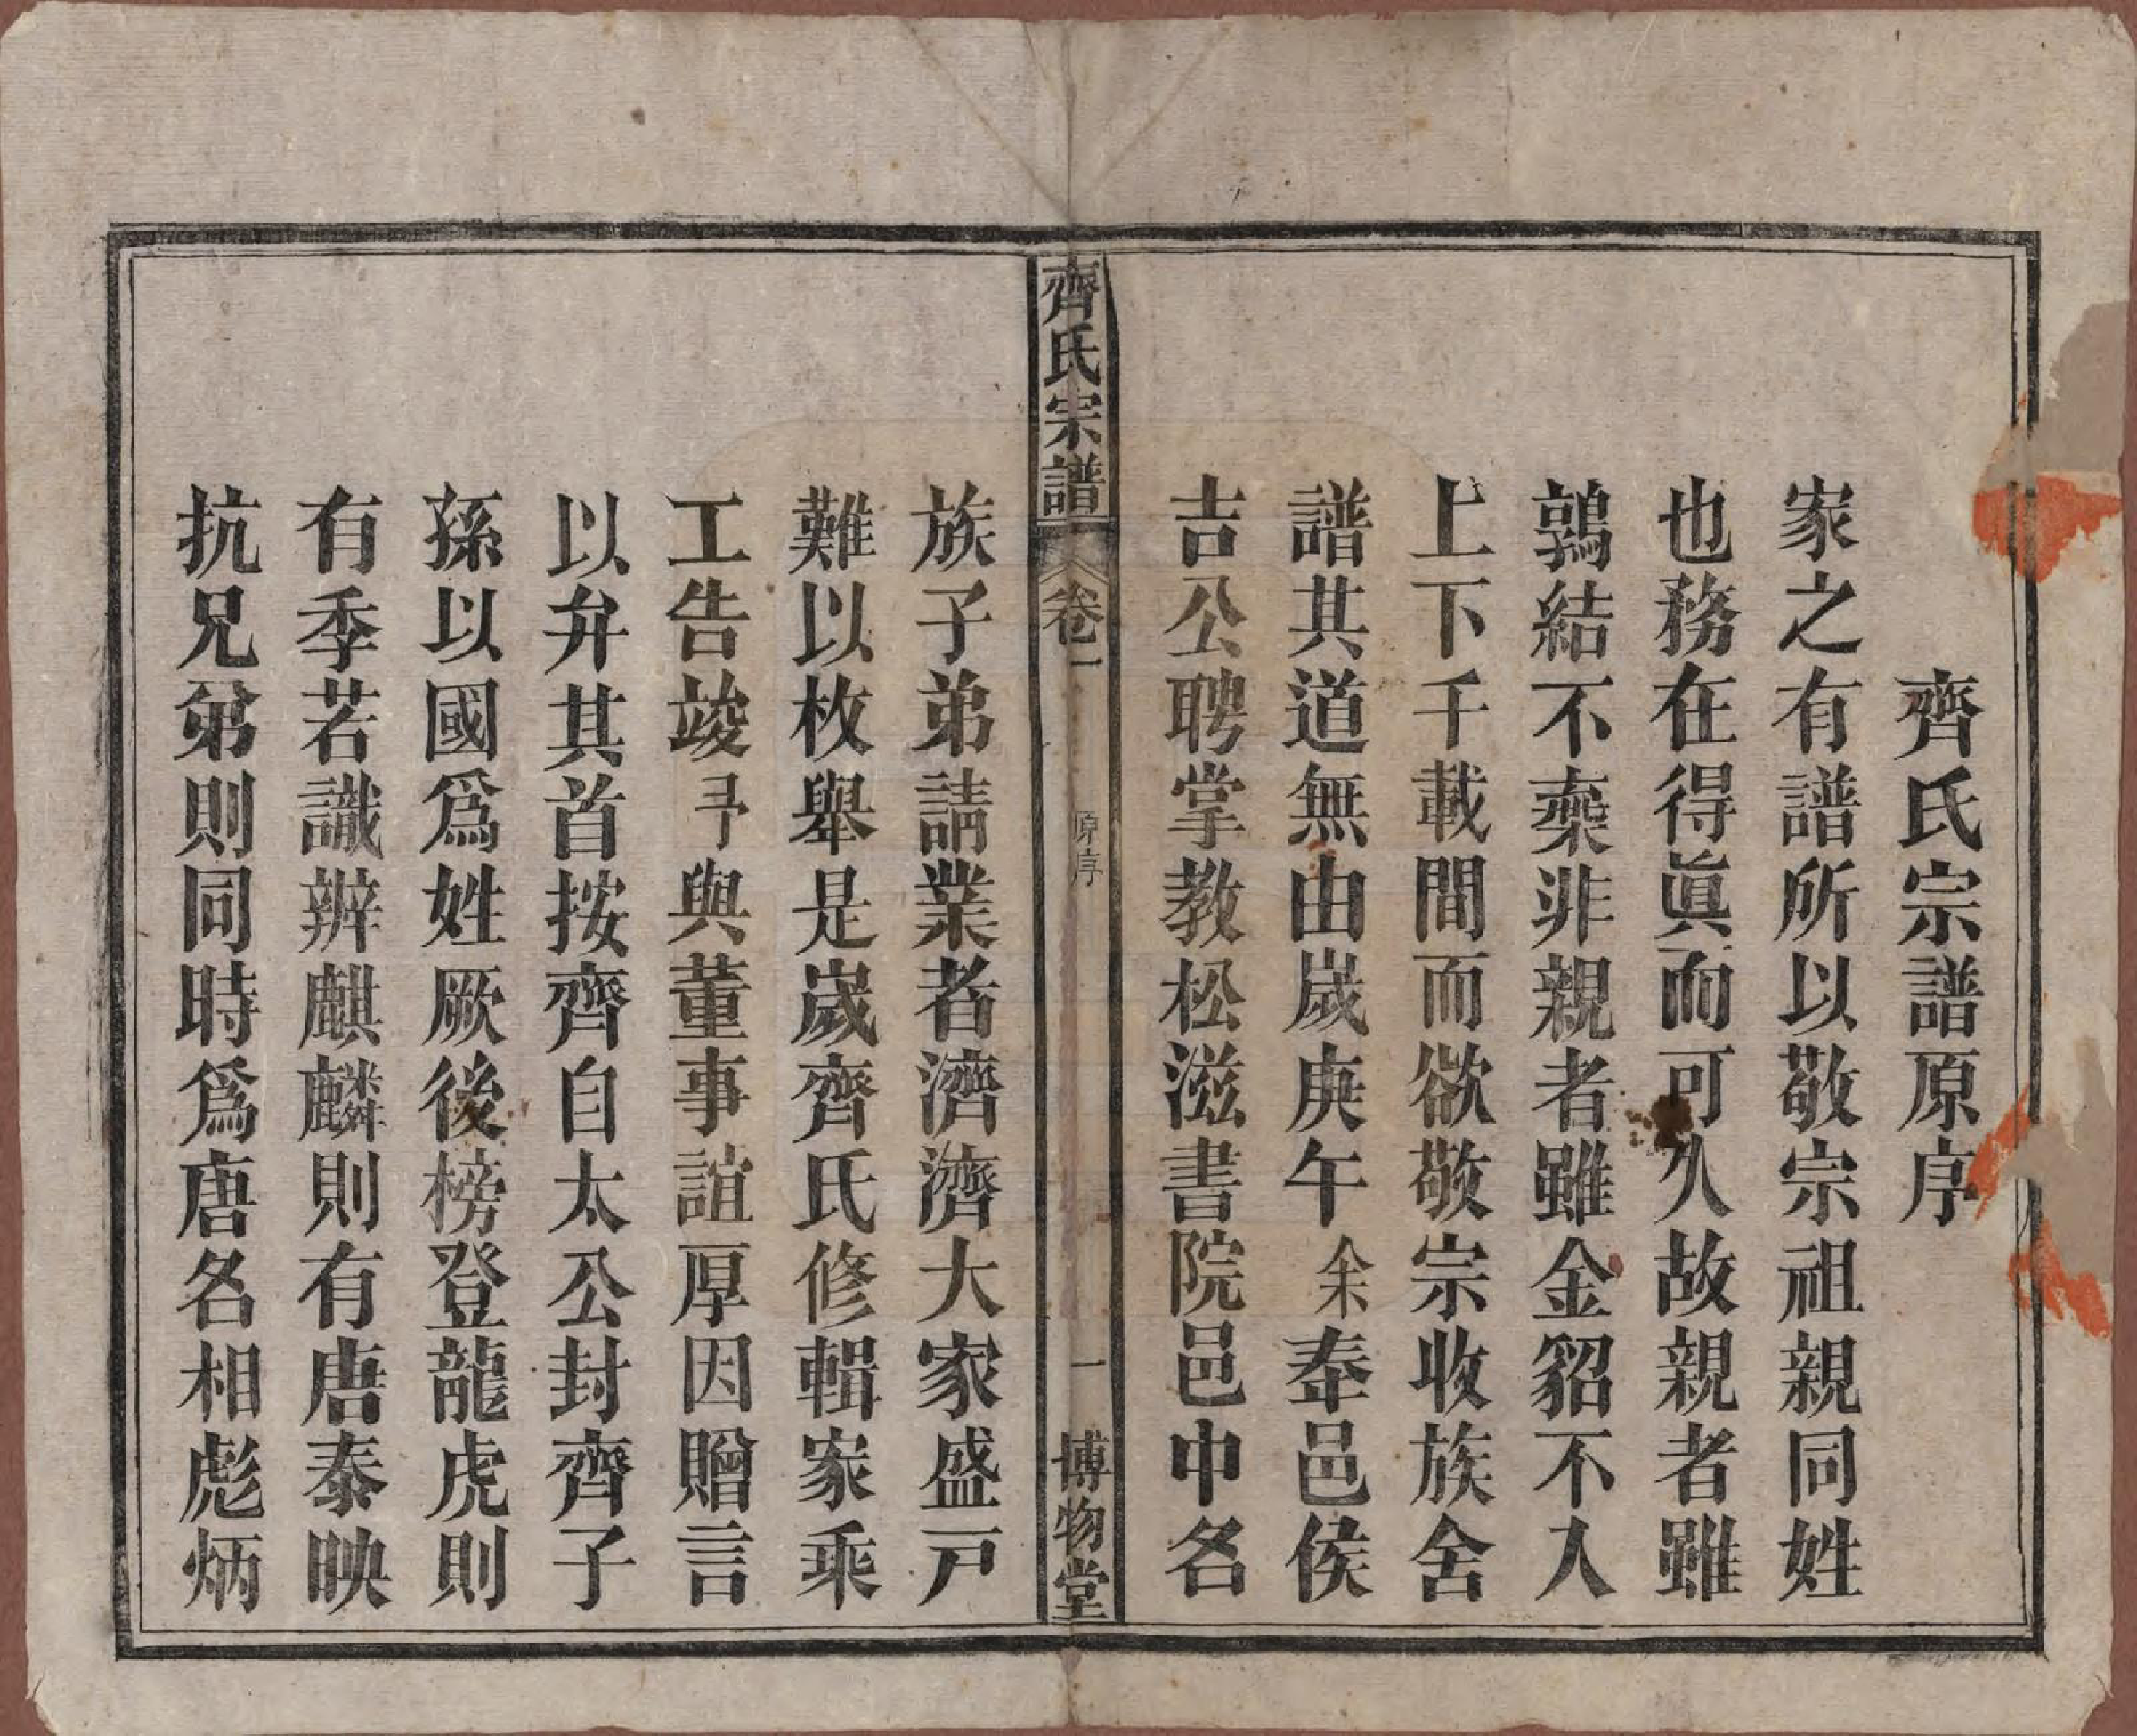 齊氏宗譜原序
家之有譜所以敬宗祖親同姓
也務在得眞而可久故親者雖
鶉結不棄非親者雖金貂不入
上下千載間而欲敬宗收族舍
譜其道無由歲庚午余奉邑侯
吉公聘掌教松滋書院邑中名
齊氏宗譜
卷一
原序
一
博物堂
族子弟請業者濟濟大家盛戸
難以枚舉是歲齊氏修輯家乘
工告竣予與董事誼厚因贈言
以弁其首按齊自太公封齊子
孫以國爲姓厥後榜登龍虎則
有季若識辨麒麟則有唐泰映
抗兄弟則同時爲唐名相彪炳